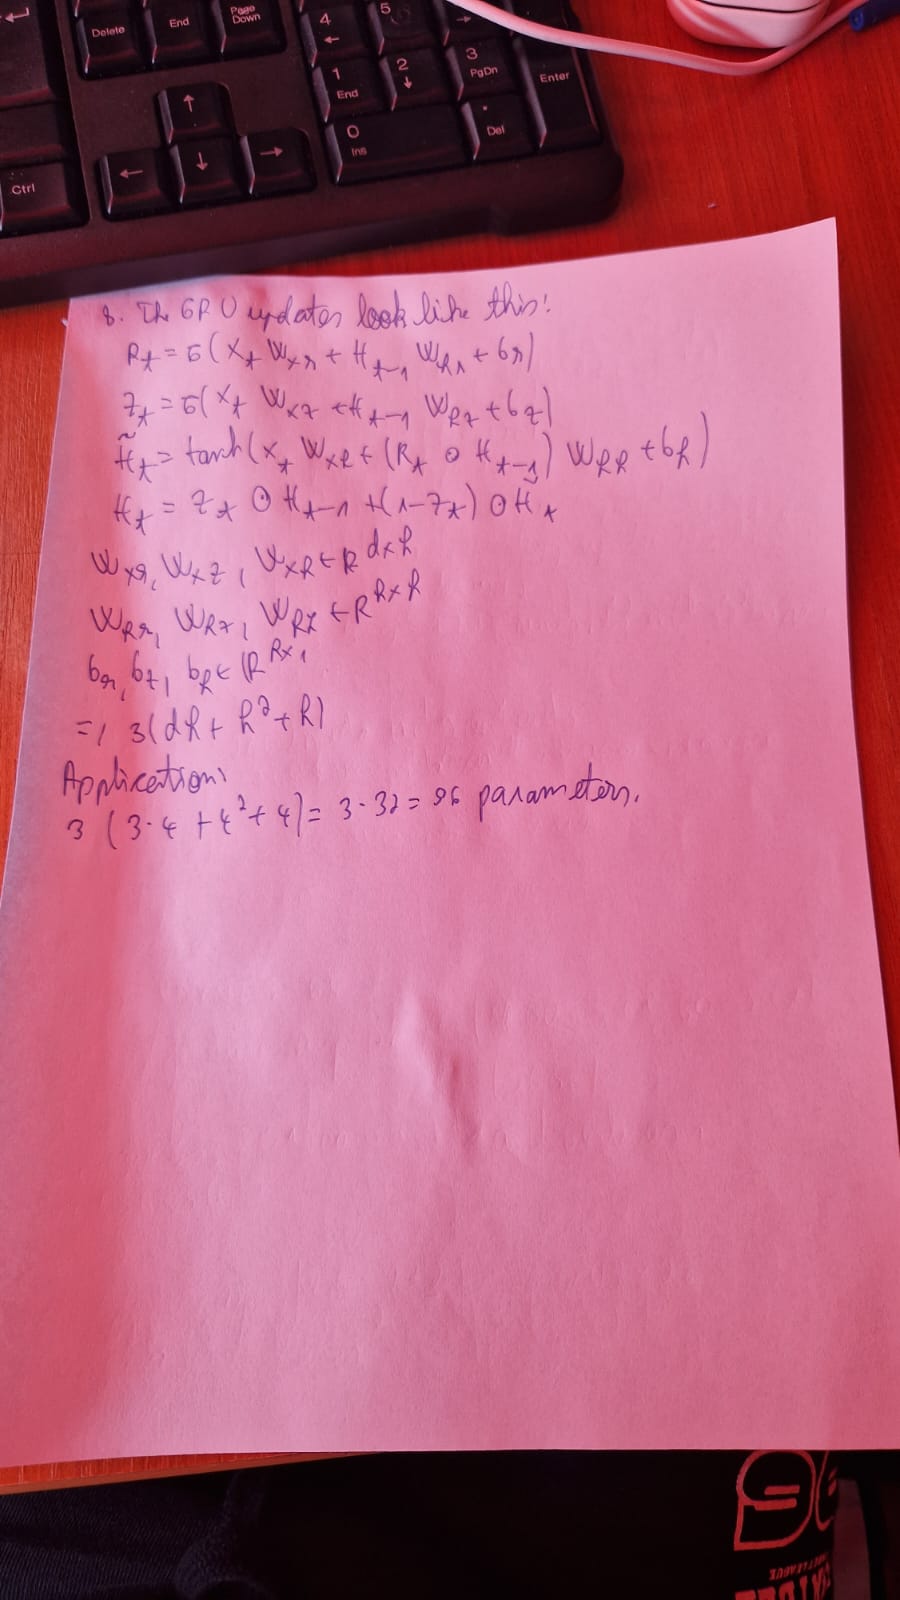 Delete
End
Page Down
4
←
5
→
1
End
2
↓
3
PgDn
Enter
0
Ins
.
Del
↑
←
↓
→
Ctrl
8. The GRU updates look like this:
R_t = σ(X_t W_xr + H_t-1 W_hr + b_r)
Z_t = σ(X_t W_xz + H_t-1 W_hz + b_z)
H̃_t = tanh(X_t W_xh + (R_t ⊙ H_t-1) W_hh + b_h)
H_t = Z_t ⊙ H_t-1 + (1-Z_t) ⊙ H_t
W_xr, W_xz, W_xh ∈ R^dxh
W_hr, W_hz, W_hz ∈ R^hxh
b_r, b_z, b_h ∈ R^hx1
=) 3(dh + h² + h)
Application:
3 (3·4 + 4² + 4) = 3·32 = 96 parameters.